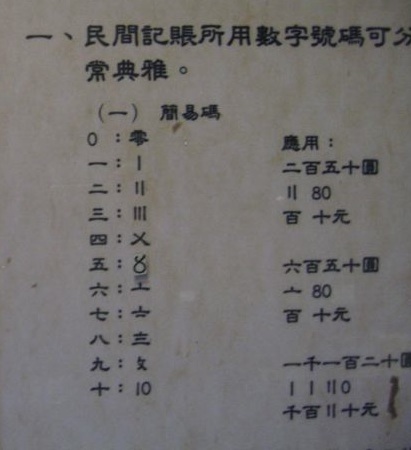 一、民間記賬所用數字號碼可分
常典雅。
（一） 簡易碼
0：零
一：〡
二：〢
三：〣
四：〤
五：〥
六：〦
七：〧
八：〨
九：〩
十：10
應用：
二百五十圓
〢 80
百 十元
六百五十圓
〦 80
百 十元
一千一百二十圓
〡〡〢0
千百〢十元